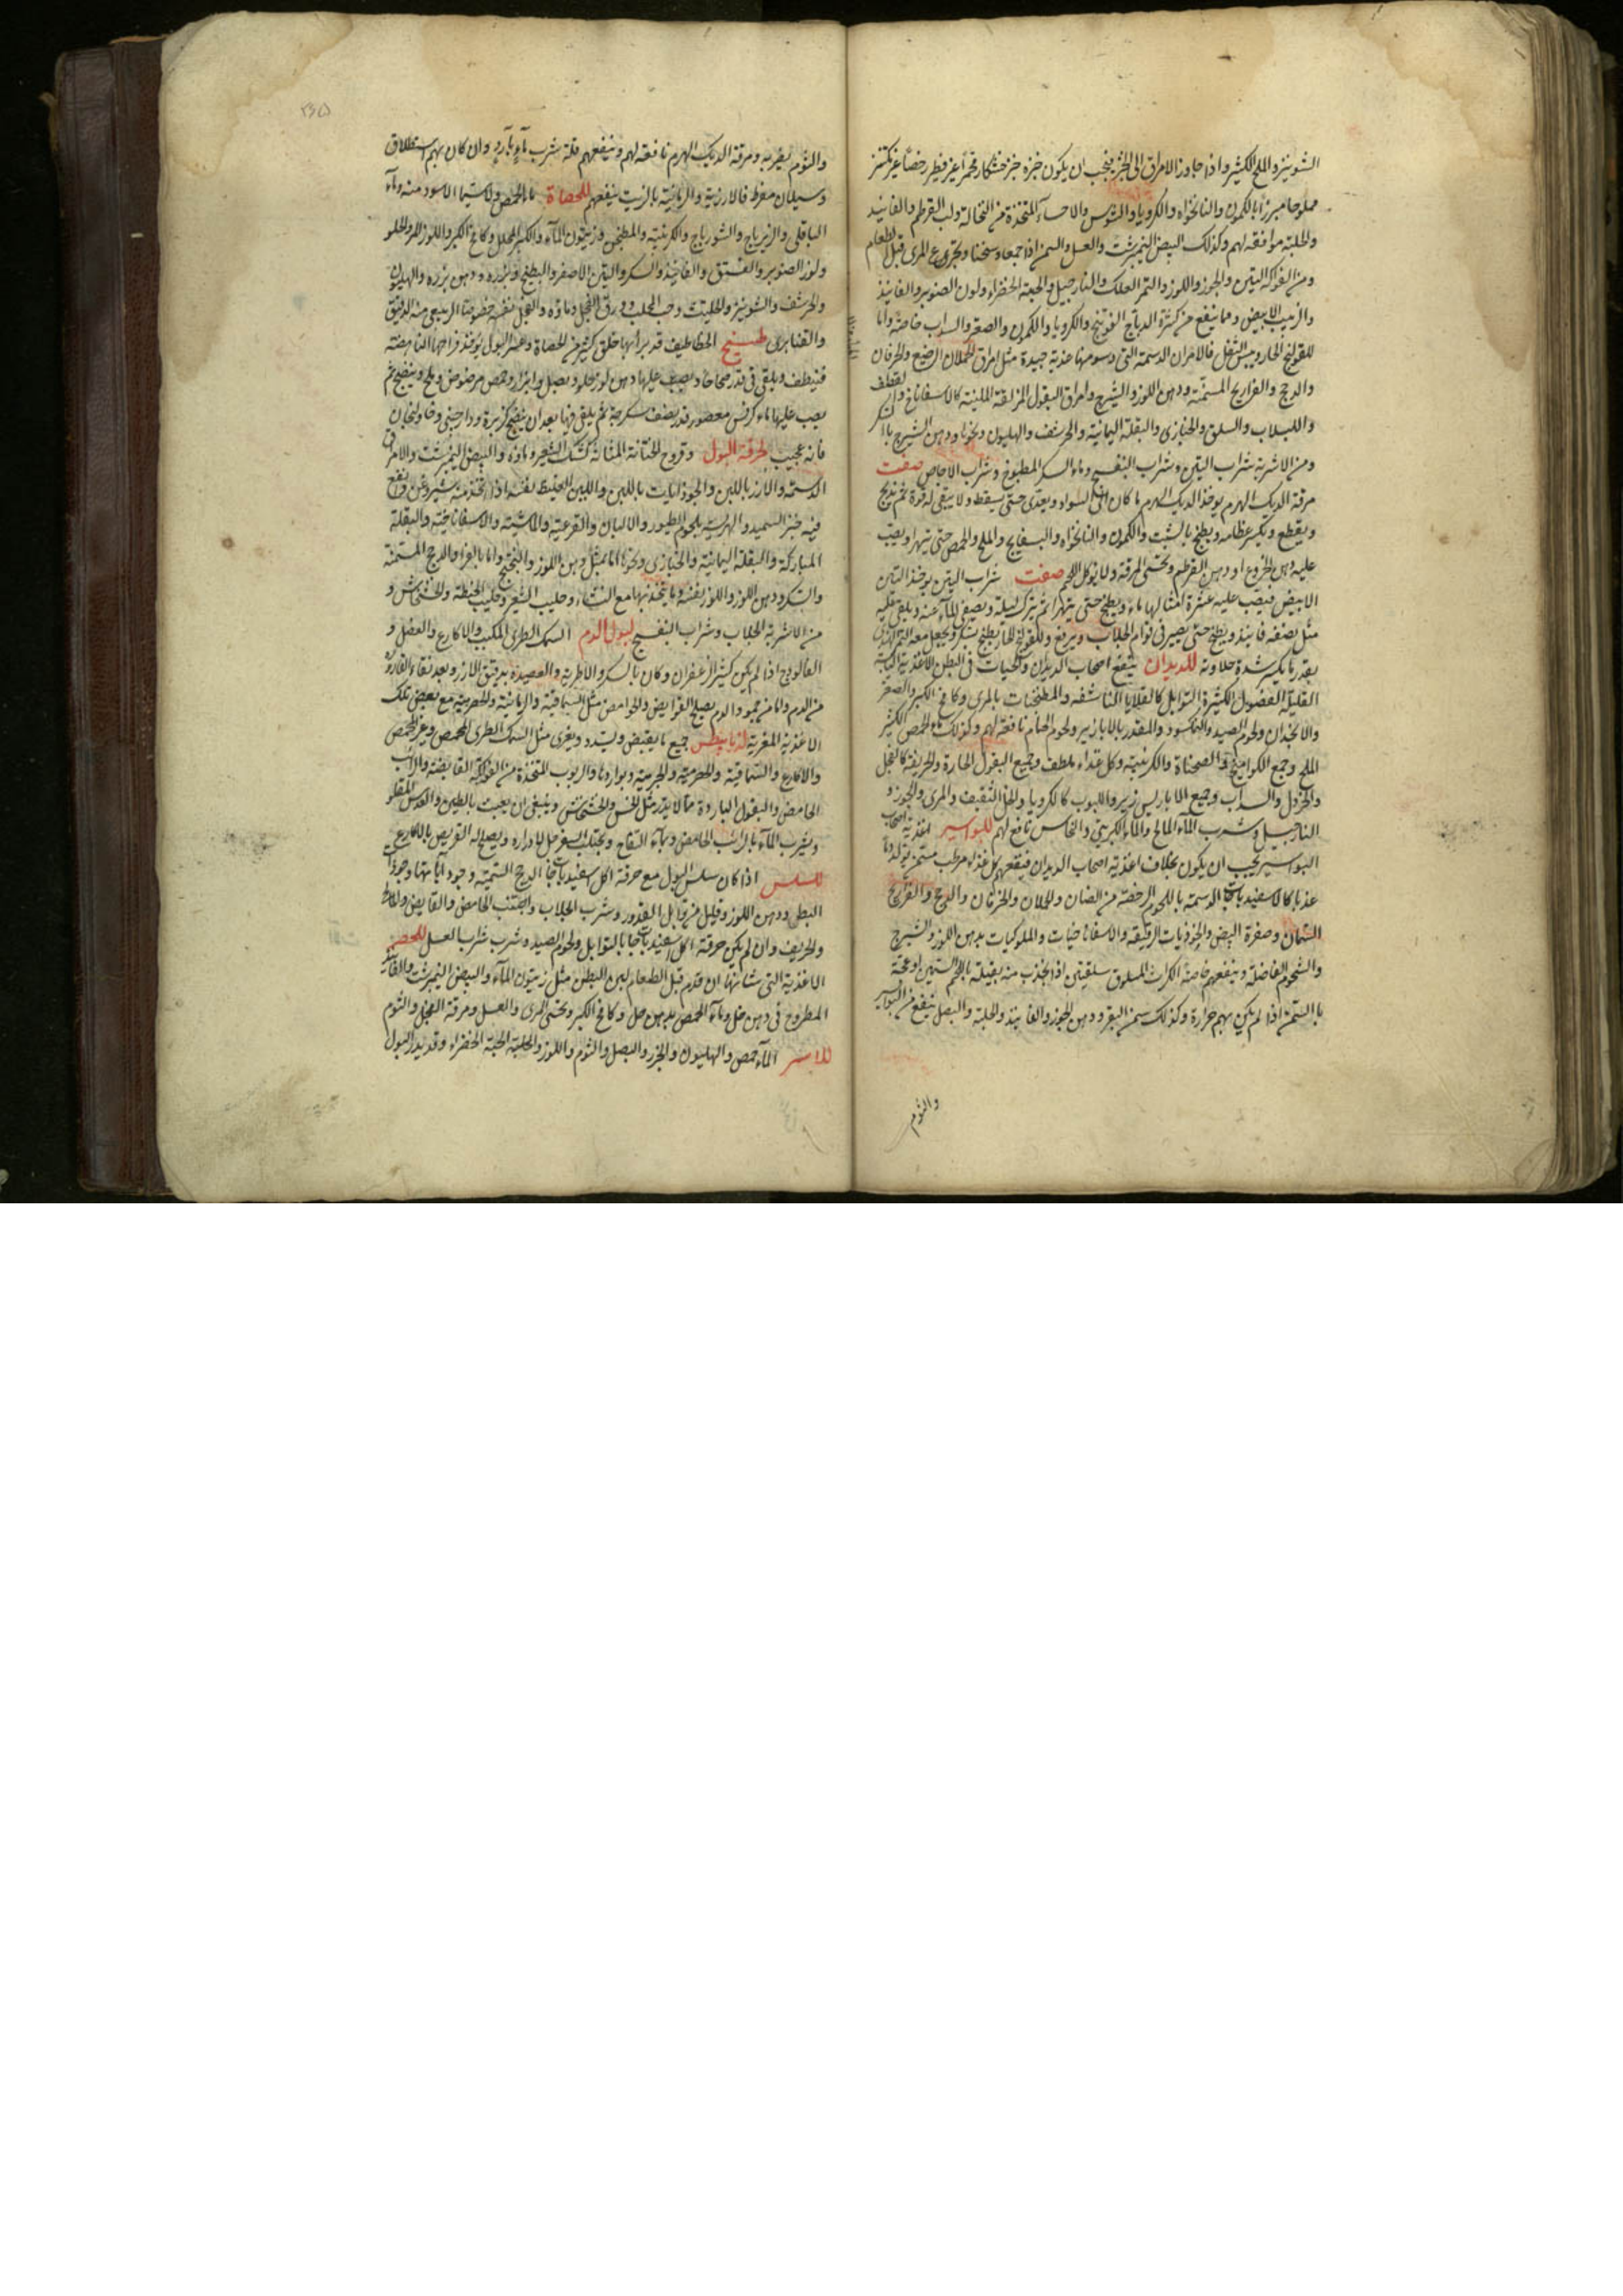 الشونيز والملح الكثير واذا جاوز الامراق الى الخبز فيجب ان يكون خبزه خبز خشكار مخمرا غير فطير رخصا غير مكتنز
مملوحا مبزرا بالكمون والنانخواه والكرويا والشونيز والاحساء المتخذة من النخالة ولب القرطم والفانيد
والحلبة موافقة لهم وكذلك البيض النيمبرشت والعسل والسمن اذا جمعا وسخنا وتجرع المرى قبل الطعام
ومن الفواكه التين والجوز واللوز والتمر العلك والنارجيل والحبة الخضراء ولوز الصنوبر والفانيذ
والزبيب الابيض ومما ينفع من كثرة الرياح الفوتنج والكرويا والكمون والصعتر والسداب خاصة واما
للقولنج الحار ويبس الثفل فالامراق الدسمة التى دسومتها عذبة جيدة مثل امراق الحملان الرضيع والخرفان
والدجج والفراريج المسمنة ودهن اللوز والشيرج وامراق البقول المزلقة الملينة كالاسفاناخ والقطف
واللبلاب والسلق والخبازى والبقلة اليمانية والحرشف والهليون ونحوها ودهن الشيرج بالسكر
ومن الاشربة شراب التين وشراب البنفسج وماء السكر المطبوخ وشراب الاجاص صفت
مرقة الديك الهرم يوخذ الديك الهرم ما كان الى السواد ويعدى حتى يسقط ولا يبقى له قوة ثم يذبح
ويقطع وتكسر عظامه ويطبخ بالشبت والكمون والنانخواه والبسفايج والملح والحمص حتى يتهرا ويصب
عليه دهن الخروع او دهن القرطم ويحتسى المرقة ولا يوكل اللحم صفت شراب التين يوخذ التين
الابيض فيصب عليه عشرة امثالها ماء ويطبخ حتى يتهرا ثم يترك ليلة ويصفى الماء عنه ويلقى عليه
مثل نصفه فانيذ ويطبخ حتى يصير فى قوام الجلاب ويرفع وللقولنج الحار يطبخ بسكر ويجعل معه التمر الهندى
بقدر ما يكسر شدة حلاوته للديدان ينتفع اصحاب الديدان والحيات فى البطن الاغذية اليابسة
القليلة الفضول الكثيرة التوابل كالقلايا الناشفة والمطجنات بالمرى وكامخ الكبر والصعتر
والانجدان ولحوم الصيد والنمكسود والمقدد بالابازير ولحوم الحمام نافعة لهم وكذلك ماء الحمص الكثير
الملح وجميع الكواميخ والصحناة والكرنبية وكل غذاء ملطف وجميع البقول الحارة والحريفة كالفجل
والخردل والسداب وجميع الابازير والحبوب كالكرويا والخل الثقيف والمرى والجوز و
النارجيل وشرب الماء المالح والماء الكبريتى والنحاسى نافع لهم للبواسير اغذية اصحاب
البواسير يجب ان يكون بخلاف اغذية اصحاب الديدان فينفعهم كل غذاء مرطب مسمن يولد دما
عذبا كالاسفيدباجات الدسمة باللحوم الرخصة من الضان والحملان والخرفان والدجج والفراريج
السمان وصفرة البيض والجوذابات الرقيقة والاسفاناخيات والملوكيات بدهن اللوز والشيرج
والشحوم الفاضلة وينفعهم خاصة الكراث المسلوق سلقتين اذا اتخذت منه بقيلة باللحم السمين او عجة
بالسمن اذا لم يكن بهم حرارة وكذلك سمن البقر ودهن الجوز والفانيذ والحلبة والبصل ينفع من البواسير
والثوم
والثوم يضر به ومرقة الديك الهرم نافعة لهم وينفعهم قلة شرب ماء بارد وان كان بهم استطلاق
وسيلان مفرط فالارزية والرمانية بالزبيب ينفعهم للحصاة ماء الحمص ولا سيما الاسود منه وماء
الباقلى والزيرباج والشورباج والكرنبية والمطجن وزيتون الماء والكبر المخلل وكامخ الكبر واللوز المر والحلو
ولوز الصنوبر والفستق والفانيذ والسكر والتين الاصفر والبطيخ وبزره ودهن بزره والهليون
والحرشف والشونيز والحلتيت وحب المحلب وورق الفجل وماؤه والفجل نفسه خصوصا الربيعى منه الدقيق
والقنابرى طبيخ الخطاطيف قد برا بها خلق كثير من الحصاة وعسر البول يوخذ فراخها الناهضة
فينظف ويلقى فى قدر صحاحا ويصب عليها دهن لوز حلو وبصل وابزار وحمص مرضوض وملح وينضج ثم
يصب عليها ماء كرفس معصور قدر نصف سكرجة ثم يلقى فيها بعد ان ينضج كزبرة ودارصينى وخاولنجان
فانه عجيب لحرقة البول وقروح المثانة كشك الشعير وماؤه والبيض النيمبرشت والامراق
الدسمة والارز باللبن والجوذابات باللبن واللبن الحليط نفسه اذا اتخذ منه وقد نقع
فيه خبز السميد والهريسة بلحوم الطيور والالبان والقرعية والماشية والاسفاناخية والبقلة
المباركة والبقلة اليمانية والخبازى ونحوها اما بمثل دهن اللوز والبنفسج واما بالفراريج والدجج المسمنة
والسكر ودهن اللوز واللوز نفسه وما يتخذ منها مع النشاء وحليب الشعير وحليب الحنطة والخشخاش و
من الاشربة الجلاب وشراب البنفسج لبول الدم السمك الطرى المكبب والاكارع والعضل و
الفالوذج اذا لم يكن كثير الزعفران وكان بالسكر والاطرية والعصيدة بدقيق الارز وبعد نقاء القارورة
من الدم واما من جمود الدم يصلح القوابض والحوامض مثل السماقية والرمانية والحصرمية مع بعض تلك
الاغذية المغرية لذيابيطس جميع ما يقبض ويسدد ويغرى مثل السمك الطرى المحمص وغير المحمص
والاكارع والسماقية والحصرمية وبواردها والربوب المتخذة من الفواكه القابضة والرائب
الحامض والبقول الباردة مما لا يدر مثل الخس والخشخاش وينبغى ان يعبث بالطين والعدس المقلو
ويشرب الماء بالرائب الحامض وماء التفاح ويجتنب السفرجل لادراره ويصلح له القريص بالاكارع
للسلس اذا كان سلس البول مع حرقة اكل اسفيدباجات الدجج السمينة وجوذاباتها وجوذاب
البط ودهن اللوز وقليل من توابل القدور وشرب الجلاب واجتنب الحامض والقابض والمالح
والحريف وان لم يكن حرقة اكل اسفيدباجات بالتوابل ولحوم الصيد وشرب شراب العسل للحصر
الاغذية التى من شانها ان قدم قبل الطعام لين البطن مثل زيتون الماء والبيض النيمبرشت والفانيذ
المطروح فى دهن خل وماء الحمص بدهن حل وكامخ الكبر وتحسى المرى والعسل ومرقة الفجل والثوم
للاسر الماء حمص والهليون والجزر والبصل والثوم واللوز والحلبة الحبة الخضراء وقد يدر البول